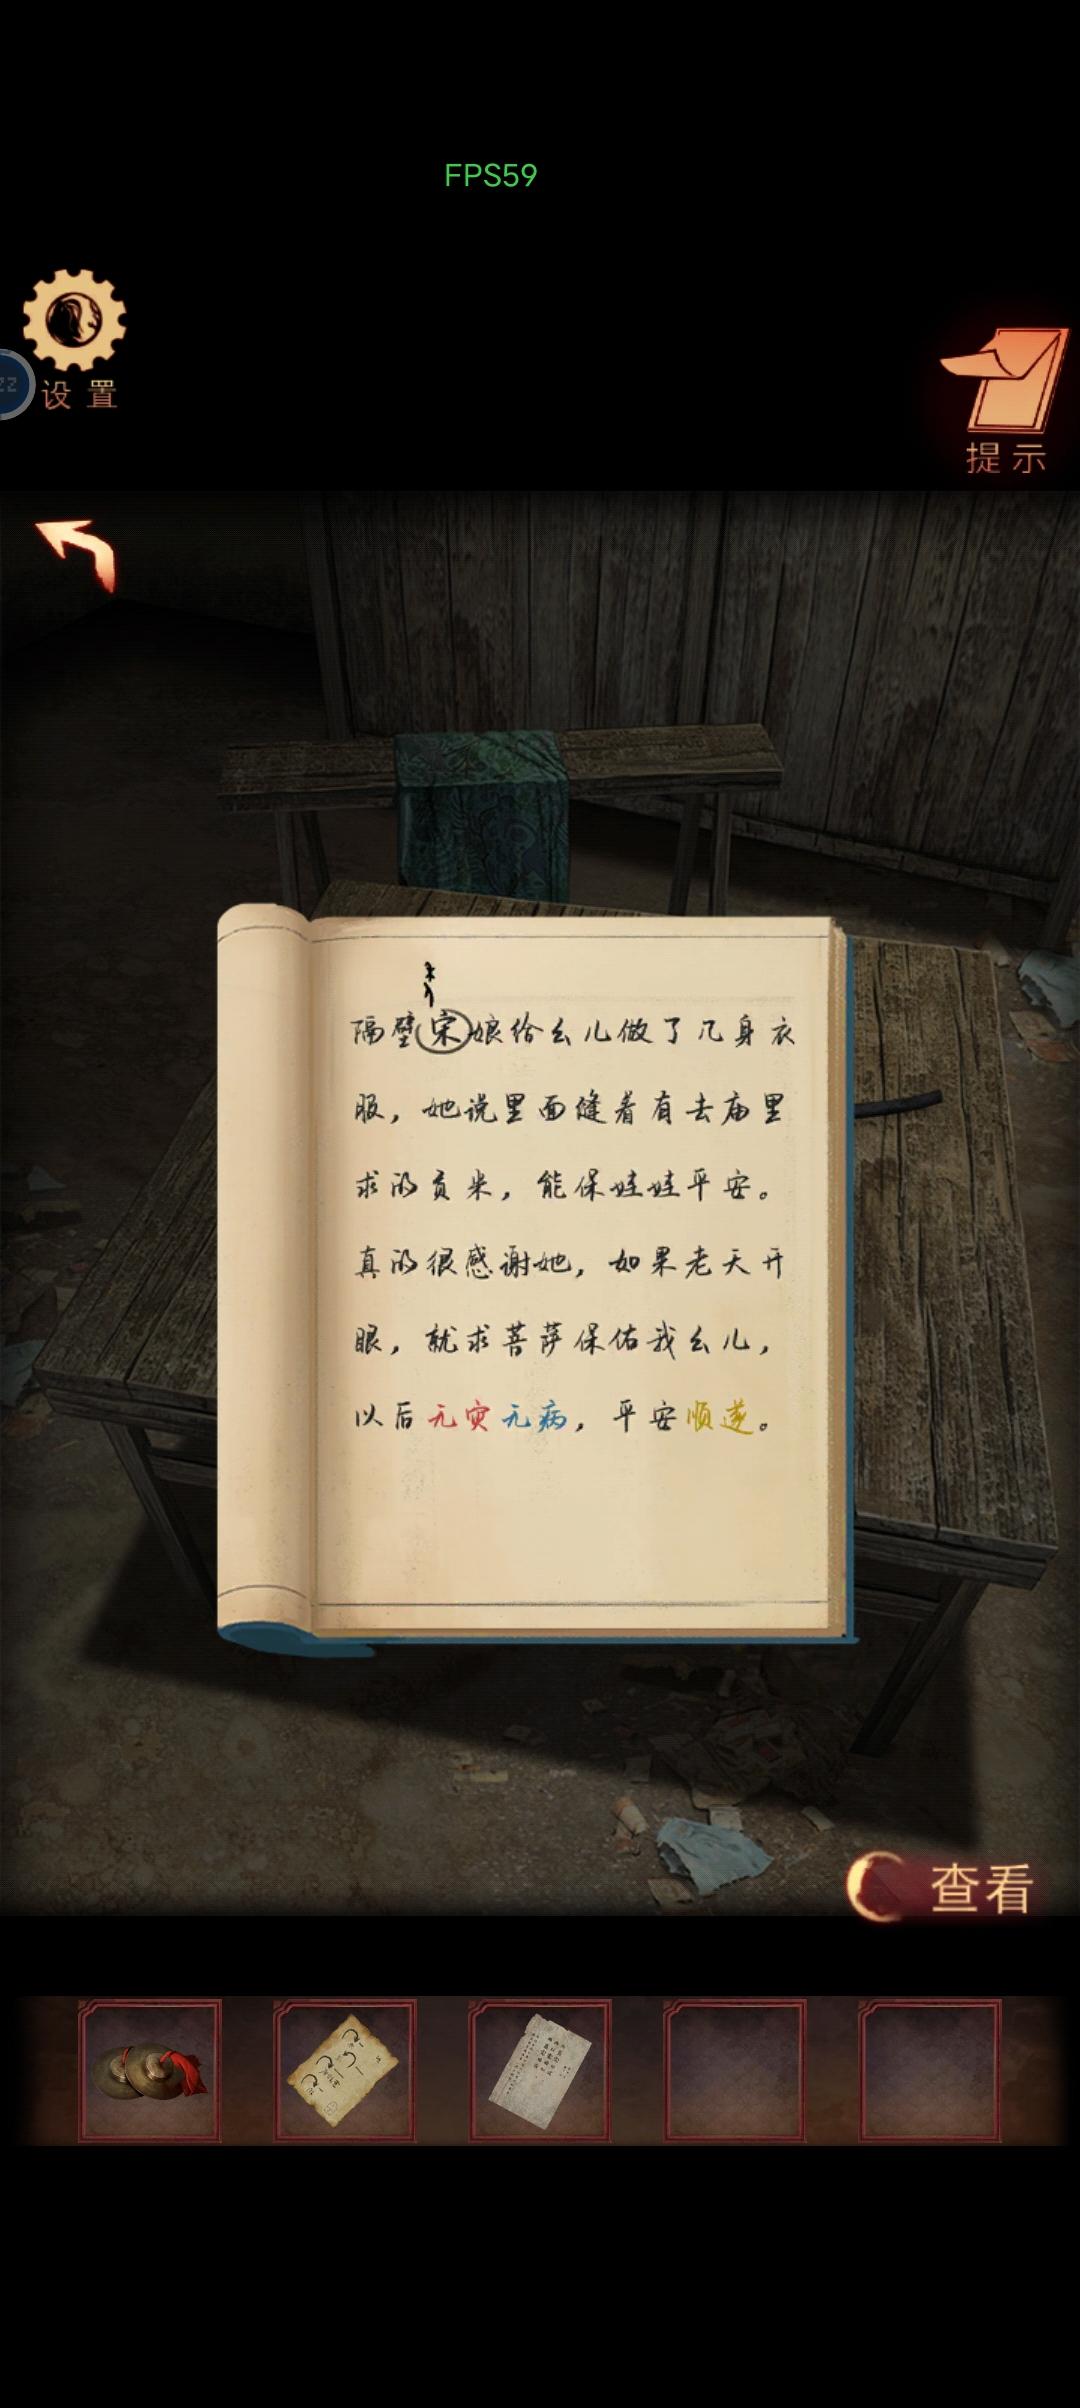 FPS59
设置
提示
隔壁宋娘给幺儿做了几身衣
服，她说里面缝着有去庙里
求的贡米，能保娃娃平安。
真的很感谢她，如果老天开
眼，就求菩萨保佑我幺儿，
以后无灾无病，平安顺遂。
查看